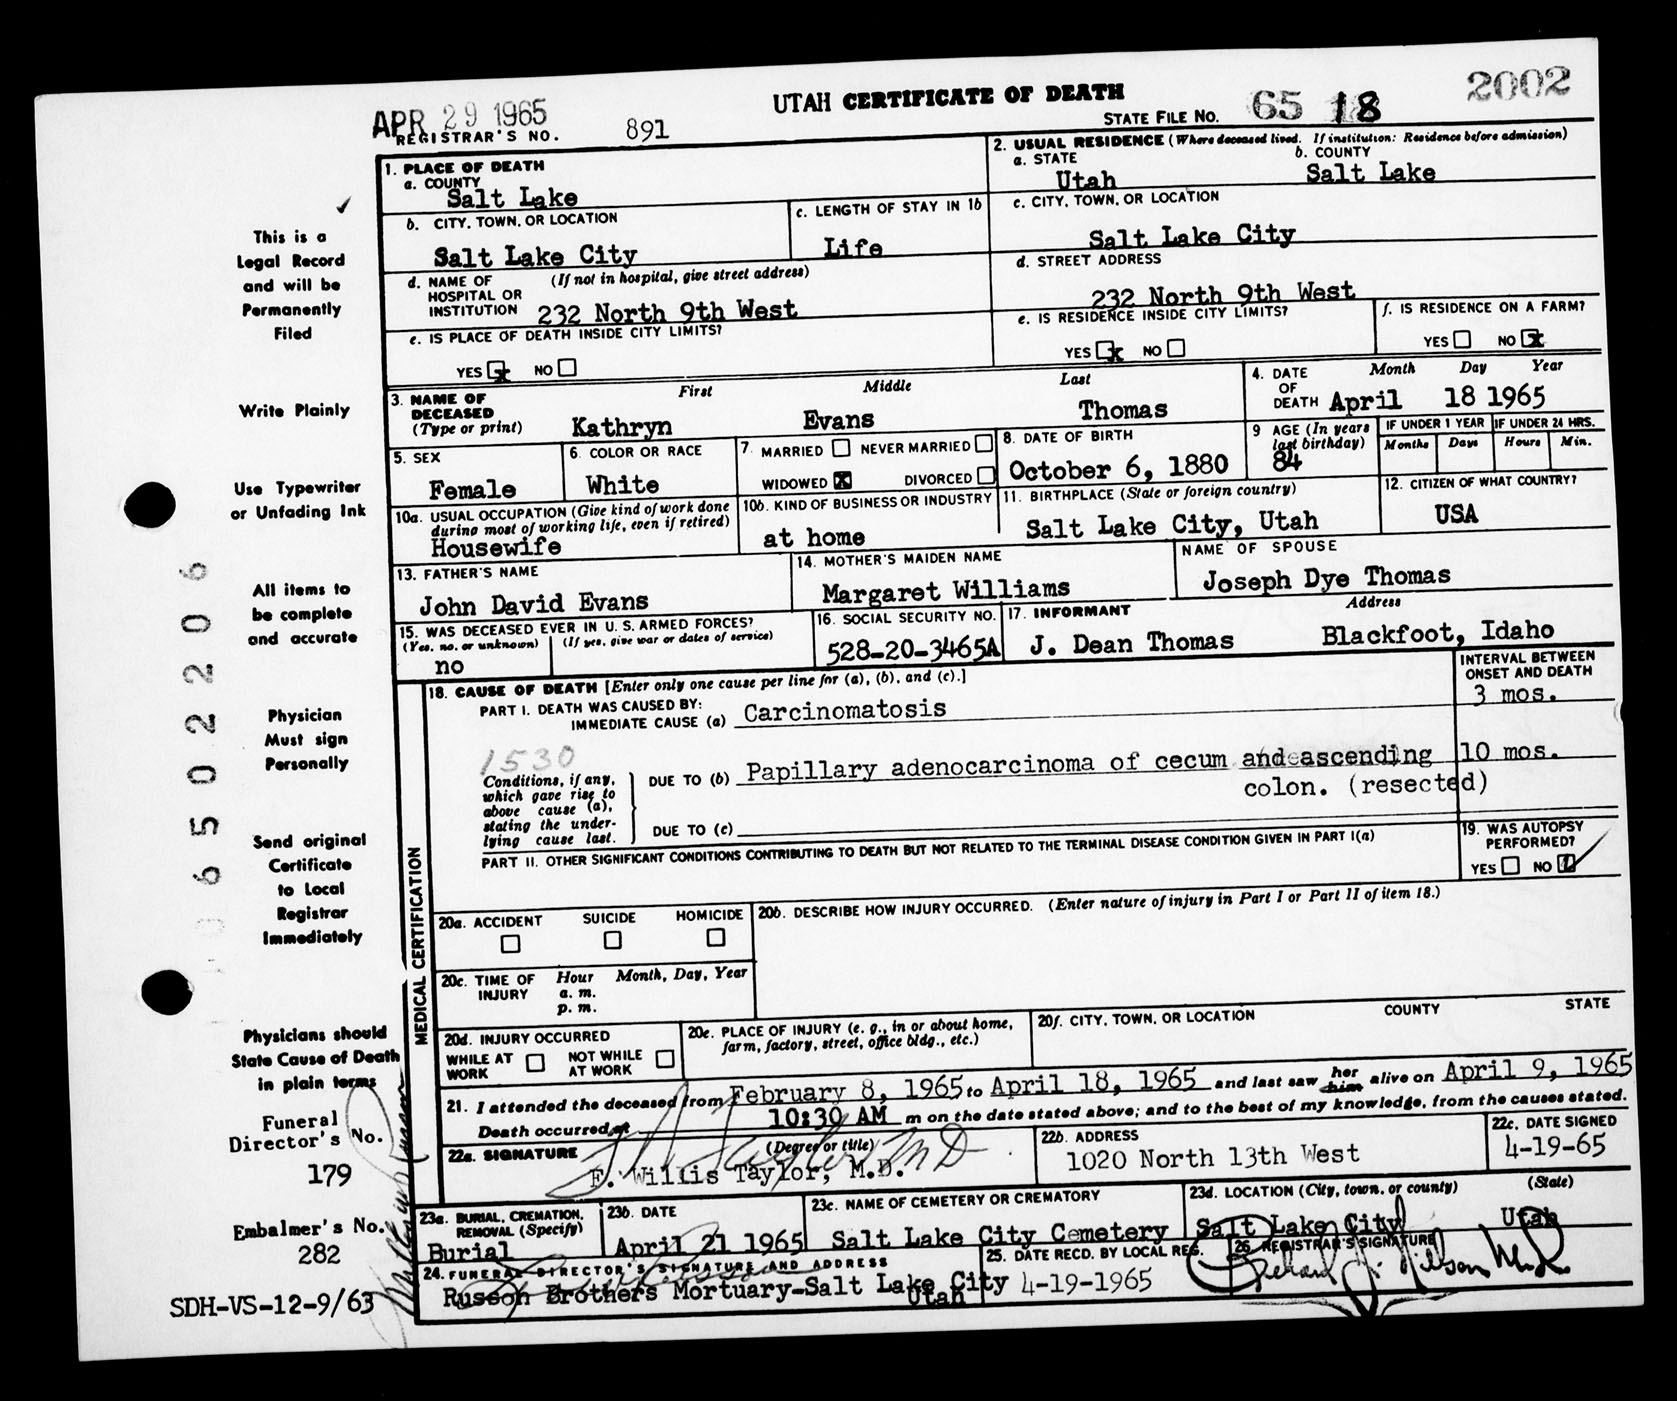 2002
UTAH CERTIFICATE OF DEATH
APR 29 1965
STATE FILE NO. 65 18
REGISTRAR'S NO. 891
1. PLACE OF DEATH
a. COUNTY
Salt Lake
2. USUAL RESIDENCE (Where deceased lived. If institution: Residence before admission)
a. STATE b. COUNTY
Utah Salt Lake
b. CITY, TOWN, OR LOCATION
Salt Lake City
c. LENGTH OF STAY IN 1b
Life
c. CITY, TOWN, OR LOCATION
Salt Lake City
d. NAME OF HOSPITAL OR INSTITUTION (If not in hospital, give street address)
232 North 9th West
d. STREET ADDRESS
232 North 9th West
e. IS PLACE OF DEATH INSIDE CITY LIMITS?
YES x NO
e. IS RESIDENCE INSIDE CITY LIMITS?
YES x NO
f. IS RESIDENCE ON A FARM?
YES NO x
3. NAME OF DECEASED (Type or print)
First Middle Last
Kathryn Evans Thomas
4. DATE OF DEATH Month Day Year
April 18 1965
5. SEX
Female
6. COLOR OR RACE
White
7. MARRIED NEVER MARRIED
WIDOWED X DIVORCED
8. DATE OF BIRTH
October 6, 1880
9 AGE (In years last birthday)
84
IF UNDER 1 YEAR
Months Days
IF UNDER 24 HRS.
Hours Min.
10a. USUAL OCCUPATION (Give kind of work done during most of working life, even if retired)
Housewife
10b. KIND OF BUSINESS OR INDUSTRY
at home
11. BIRTHPLACE (State or foreign country)
Salt Lake City, Utah
12. CITIZEN OF WHAT COUNTRY?
USA
13. FATHER'S NAME
John David Evans
14. MOTHER'S MAIDEN NAME
Margaret Williams
NAME OF SPOUSE
Joseph Dye Thomas
15. WAS DECEASED EVER IN U. S. ARMED FORCES?
(Yes, no, or unknown) (If yes, give war or dates of service)
no
16. SOCIAL SECURITY NO.
528-20-3465A
17. INFORMANT Address
J. Dean Thomas Blackfoot, Idaho
MEDICAL CERTIFICATION
18. CAUSE OF DEATH [Enter only one cause per line for (a), (b), and (c).]
INTERVAL BETWEEN ONSET AND DEATH
PART I. DEATH WAS CAUSED BY:
IMMEDIATE CAUSE (a) Carcinomatosis 3 mos.
1530
Conditions, if any, which gave rise to above cause (a), stating the underlying cause last.
DUE TO (b) Papillary adenocarcinoma of cecum and ascending 10 mos.
colon. (resected)
DUE TO (c)
PART II. OTHER SIGNIFICANT CONDITIONS CONTRIBUTING TO DEATH BUT NOT RELATED TO THE TERMINAL DISEASE CONDITION GIVEN IN PART I(a)
19. WAS AUTOPSY PERFORMED?
YES NO
20a. ACCIDENT SUICIDE HOMICIDE
20b. DESCRIBE HOW INJURY OCCURRED. (Enter nature of injury in Part I or Part II of item 18.)
20c. TIME OF INJURY Hour Month, Day, Year
a. m.
p. m.
20d. INJURY OCCURRED
WHILE AT WORK NOT WHILE AT WORK
20e. PLACE OF INJURY (e. g., in or about home, farm, factory, street, office bldg., etc.)
20f. CITY, TOWN, OR LOCATION COUNTY STATE
21. I attended the deceased from February 8, 1965 to April 18, 1965 and last saw her him alive on April 9, 1965
Death occurred at 10:30 AM m on the date stated above; and to the best of my knowledge, from the causes stated.
22a. SIGNATURE (Degree or title)
F. Willis Taylor, M.D.
22b. ADDRESS
1020 North 13th West
22c. DATE SIGNED
4-19-65
23a. BURIAL, CREMATION, REMOVAL (Specify)
Burial
23b. DATE
April 21 1965
23c. NAME OF CEMETERY OR CREMATORY
Salt Lake City Cemetery
23d. LOCATION (City, town, or county) (State)
Salt Lake City Utah
24. FUNERAL DIRECTOR'S SIGNATURE AND ADDRESS
Russon Brothers Mortuary-Salt Lake City
Utah
25. DATE RECD. BY LOCAL REG.
4-19-1965
26. REGISTRAR'S SIGNATURE
This is a
Legal Record
and will be
Permanently
Filed
Write Plainly
Use Typewriter
or Unfading Ink
All items to
be complete
and accurate
Physician
Must sign
Personally
Send original
Certificate
to Local
Registrar
Immediately
Physicians should
State Cause of Death
in plain terms
Funeral
Director's No.
179
Embalmer's No.
282
SDH-VS-12-9/63
6 5 0 2 2 0 6